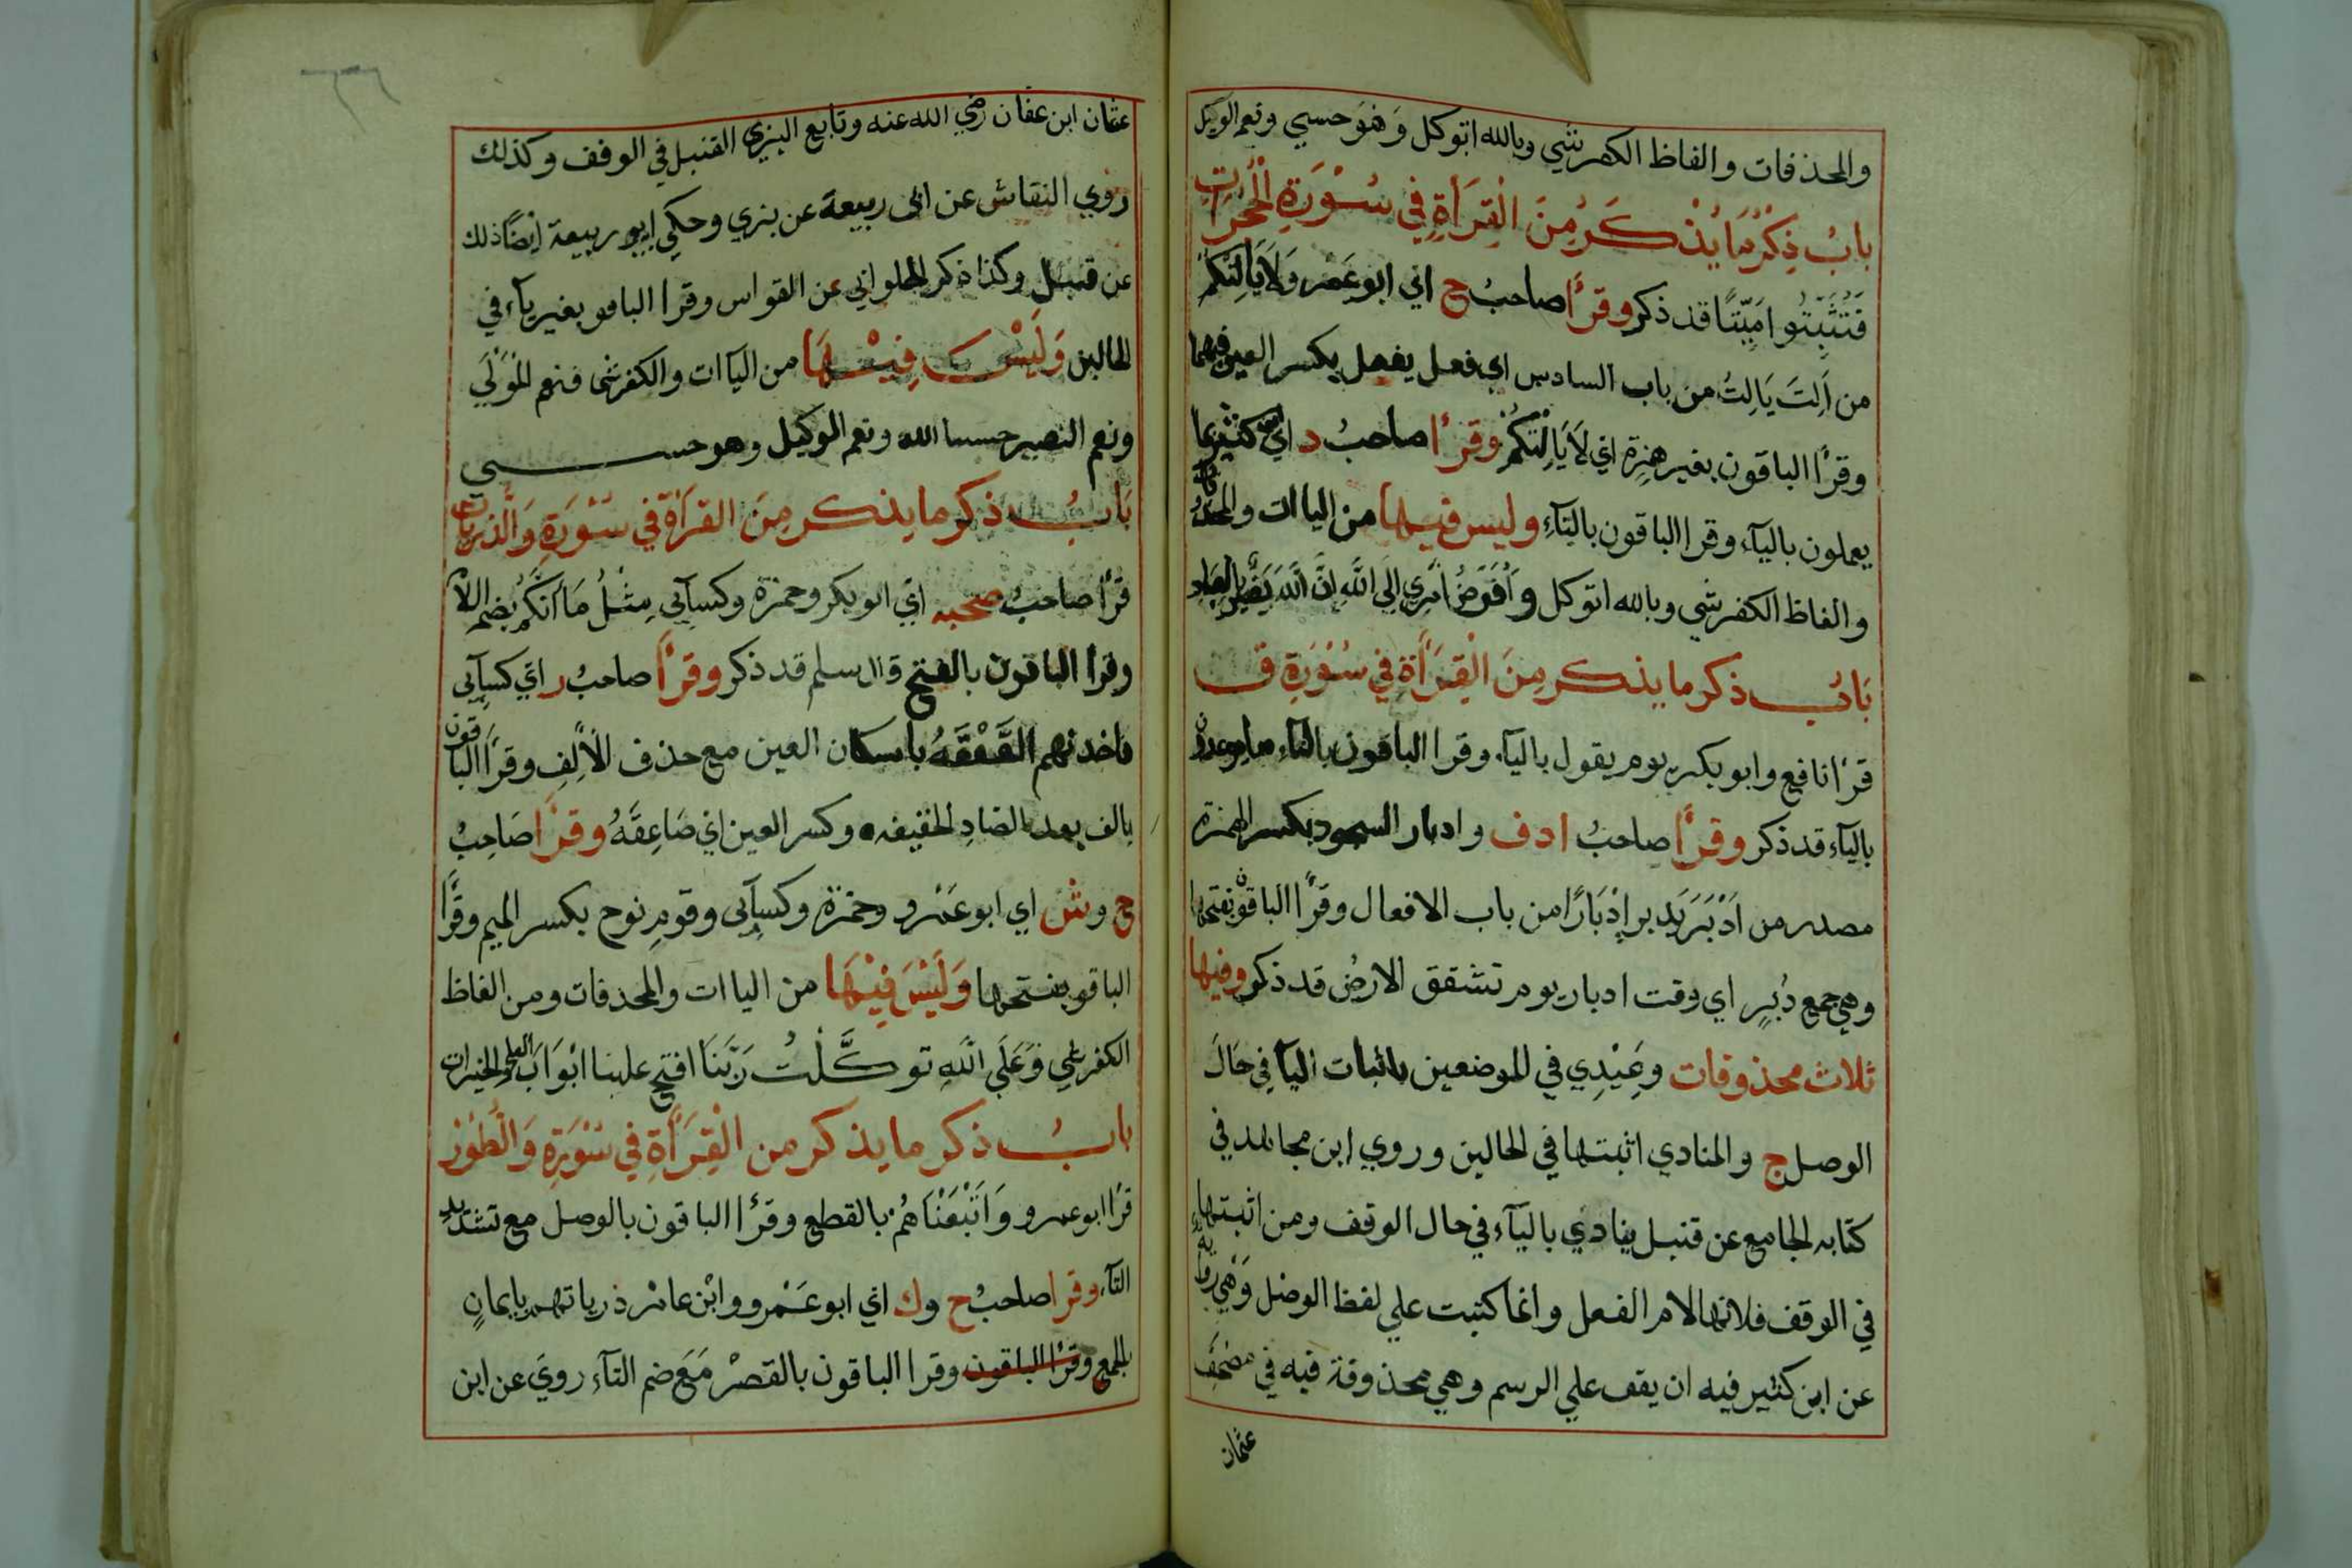 والمحذفات والفاظ الكفرشي وبالله اتوكل وَهُوَ حسبي ونعم الوكيل
بابُ ذِكْرُ مَا يُذْكَرُ مِنَ الْقِرَأَةِ فِي سُوْرَةِ الْحُجُرَاتِ
فَتُثَبِّتُوا مَيِّتًا قد ذكر وقرأ صاحبُ ح اي ابو عَمْرو وَلَا يَالِتْكُمْ
من اَلِتَ يَالِتُ من باب السادس اي فعل يفعل بكسر العين فيهما
وقرأ الباقون بغير همزة اي لَا يَالِتْكُمْ وقرأ صاحبُ د اي ابن كثير بما
يعملون بالياء وقرا الباقون بالتاء وليس فيها من اليا ات والمحذفات
والفاظ الكفرشي وبالله اتوكل وَاُفَوِّضُ اَمْرِي اِلَى اللَّهِ اِنَّ اللَّهَ بَصِيْرٌ بِالْعِبَادِ
بَابُ ذكر ما يذكر مِنَ الْقِرَأَةِ فِي سُوْرَةِ ق
قرأ نافع وابو بكر يوم يقول بالياء وقرا الباقون بالتاء ما يوعدون
بالياء قد ذكر وقرأ صاحبُ ادف وادبار السجود بكسر الهمزة
مصدر من اَدْبَرَ يَدبر اِدْبَارًا من باب الافعال وقرأ الباقون بفتحها
وهي جمع دُبُرٍ اي وقت ادبار يوم تشقق الارضُ قد ذكر وفيها
ثلاث محذوفات وَعِيْدِي في الموضعين باثبات اليآ فِي حَالَ
الوصل ج والمنادي اثبتها في الحالين وروي ابن مجاهد في
كتابه الجامع عن قنبل ينادي بالياء في حال الوقف ومن اثبتها
في الوقف فلانها لام الفعل وانما كتبت علي لفظ الوصل وَهِي رواية
عن ابن كثير فيه ان يقف علي الرسم وهي محذوفة فيه في مصحف
عثمان
عثمان ابن عفان رضي الله عنه وتابع البزي القنبل في الوقف وكذلك
روي النقاش عن ابي ربيعة عن بزي وحكي ابو ربيعة ايضًا ذلك
عن قنبل وكذا ذكر الحلواني عن القواس وقرا الباقو بغير ياء في
الحالين وَلَيْسَ فِيْهَا من اليآات والكفرشي فنعم المَوْلَي
ونعم النصير حسبنا الله ونعم الوكيل وهو حسبي
بَابُ ذكر ما يذكر مِنَ القرَأة في سُوْرَةِ وَالذّرِيَات
قرأ صاحبُ صحبه اي ابو بكر وحمزة وكسآئي مِثْلُ مَا اَنَّكُمْ بضم اللام
وقرأ الباقون بالفتح قال سلم قد ذكر وقرأ صاحبُ ر اي كسآئي
فاخذتهم الصَّعْقَهُ باسكان العين مع حذف الْاَلِفِ وقرأ الباقون
بالف بعد الصَادِ الخفيفه وكسر العين اي صَاعِقَهُ وقرأ صَاحِبُ
ح وش اي ابو عَمْرو وحمزة وكسآئي وقومِ نوح بكسر الميم وقرأ
الباقو بفتحها وَلَيْسَ فِيْهَا من اليا ات والمحذفات ومن الفاظ
الكفر علي وَعَلَي اللَّهِ توكَّلْتُ رَبَّنَا افتح علينا ابْوَابَ العلم والخيرات
بابُ ذكر ما يذكر من الْقِرَأَةِ فِي سُوْرَةِ وَالطُوْر
قرأ ابو عمرو وَاَتْبَعْنَاهُمْ بالقطع وقرأ الباقون بالوصل مع تشديد
التآء وقرا صاحبُ ح وك اي ابو عَمْرو وابْن عامر ذرياتهم بايمانٍ
بالجمع وقرأ الباقون وقرا الباقون بالقصْر مَعَ ضم التآء رويَ عن ابن